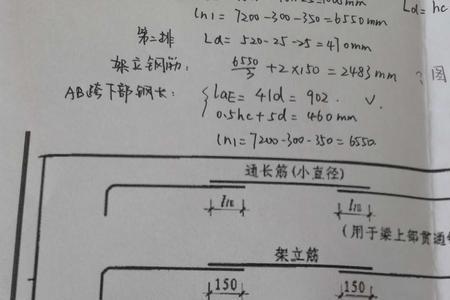 ln1 = 7200-300-350=6550mm
Ld= hc
第二排 Ld= 520-25-25=470mm
架立钢筋: 6550/3 +2×150 = 2483mm ? 图
AB跨下部钢长: { LaE= 41d = 902. V.
0.5hc+5d = 460mm
ln1=7200-300-350=6550
通长筋(小直径)
llE llE
(用于梁上部贯通
架立筋
150 150